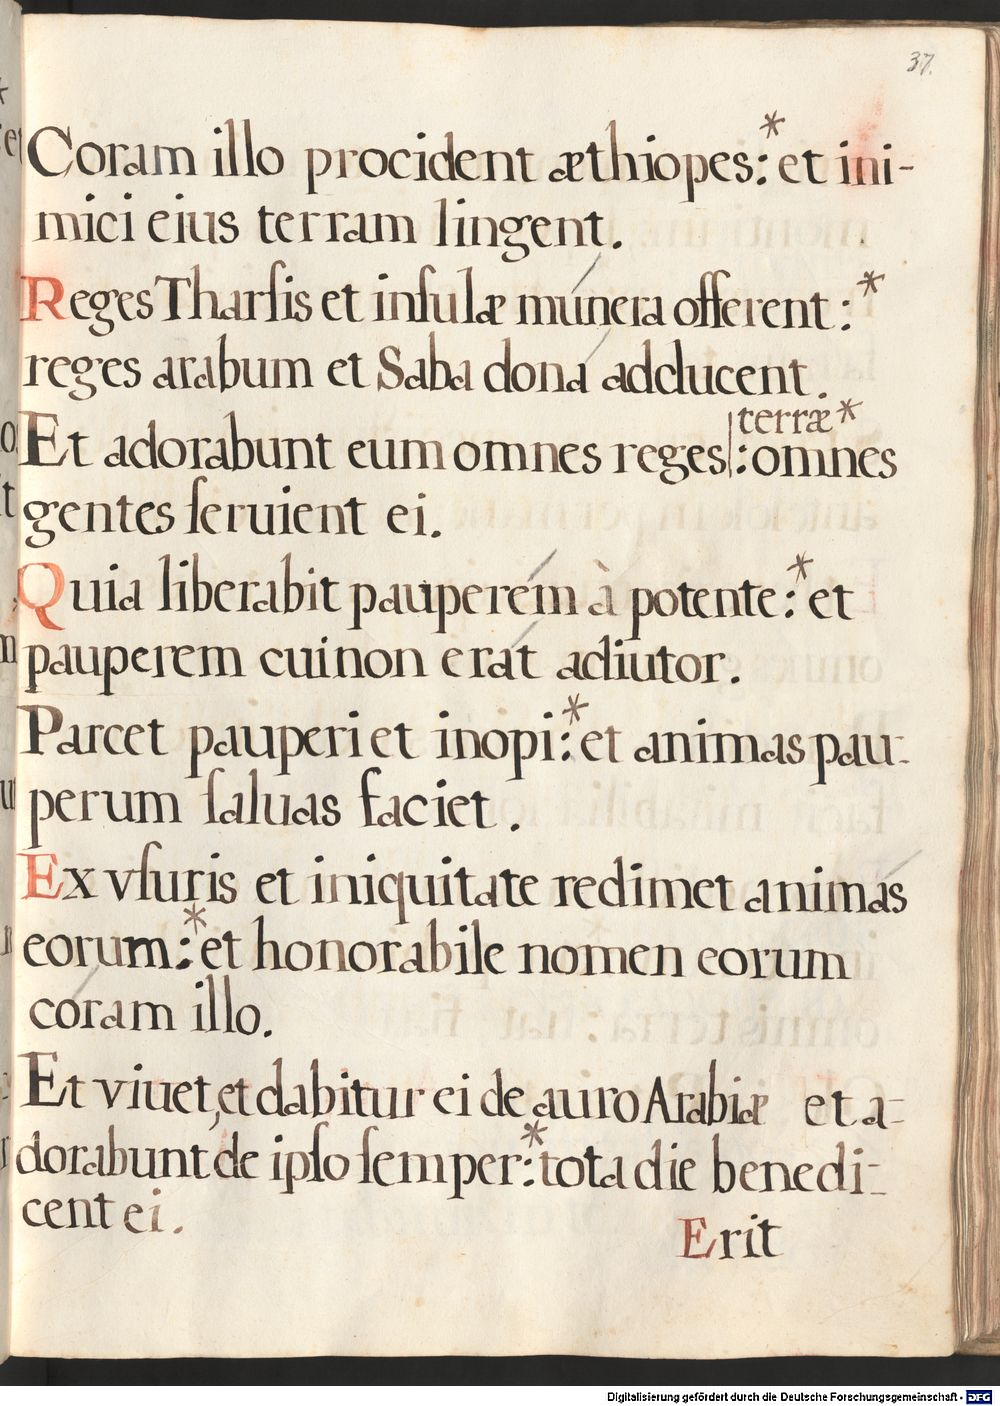 37.
Coram illo procident æthiopes:* et ini-
mici eius terram lingent.
Reges Tharſis et inſulæ munera offerent:*
reges arabum et Saba dona adducent.
terræ*
Et adorabunt eum omnes reges|:omnes
gentes ſeruient ei.
Quia liberabit pauperem à potente:* et
pauperem cui non erat adiutor.
Parcet pauperi et inopi:* et animas pau-
perum ſaluas faciet.
Ex vſuris et iniquitate redimet animas
eorum:* et honorabile nomen eorum
coram illo.
Et viuet, et dabitur ei de auro Arabiæ et a-
dorabunt de ipſo ſemper:* tota die benedi-
cent ei.
Erit
Digitalisierung gefördert durch die Deutsche Forschungsgemeinschaft - DFG